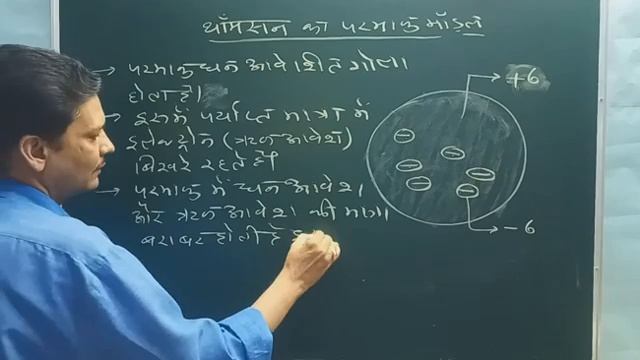 थॉमसन का परमाणु मॉडल
→ परमाणु धन आवेशित गोला
होता है।
→ इसमें पर्याप्त मात्रा में
इलेक्ट्रोन (ऋण आवेश)
बिखरे रहते हैं।
→ परमाणु में धन आवेश
और ऋण आवेश की मात्रा
बराबर होती है
+6
-6